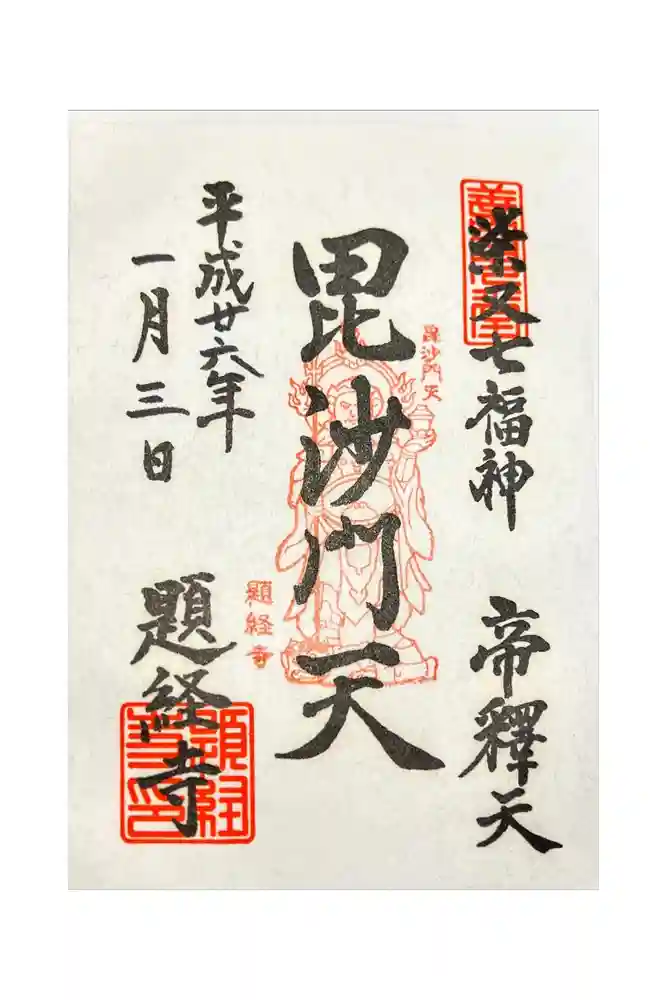 柴又七福神 帝釋天
毘沙門天
毘沙門天
題経寺
平成廿六年
一月三日
題経寺